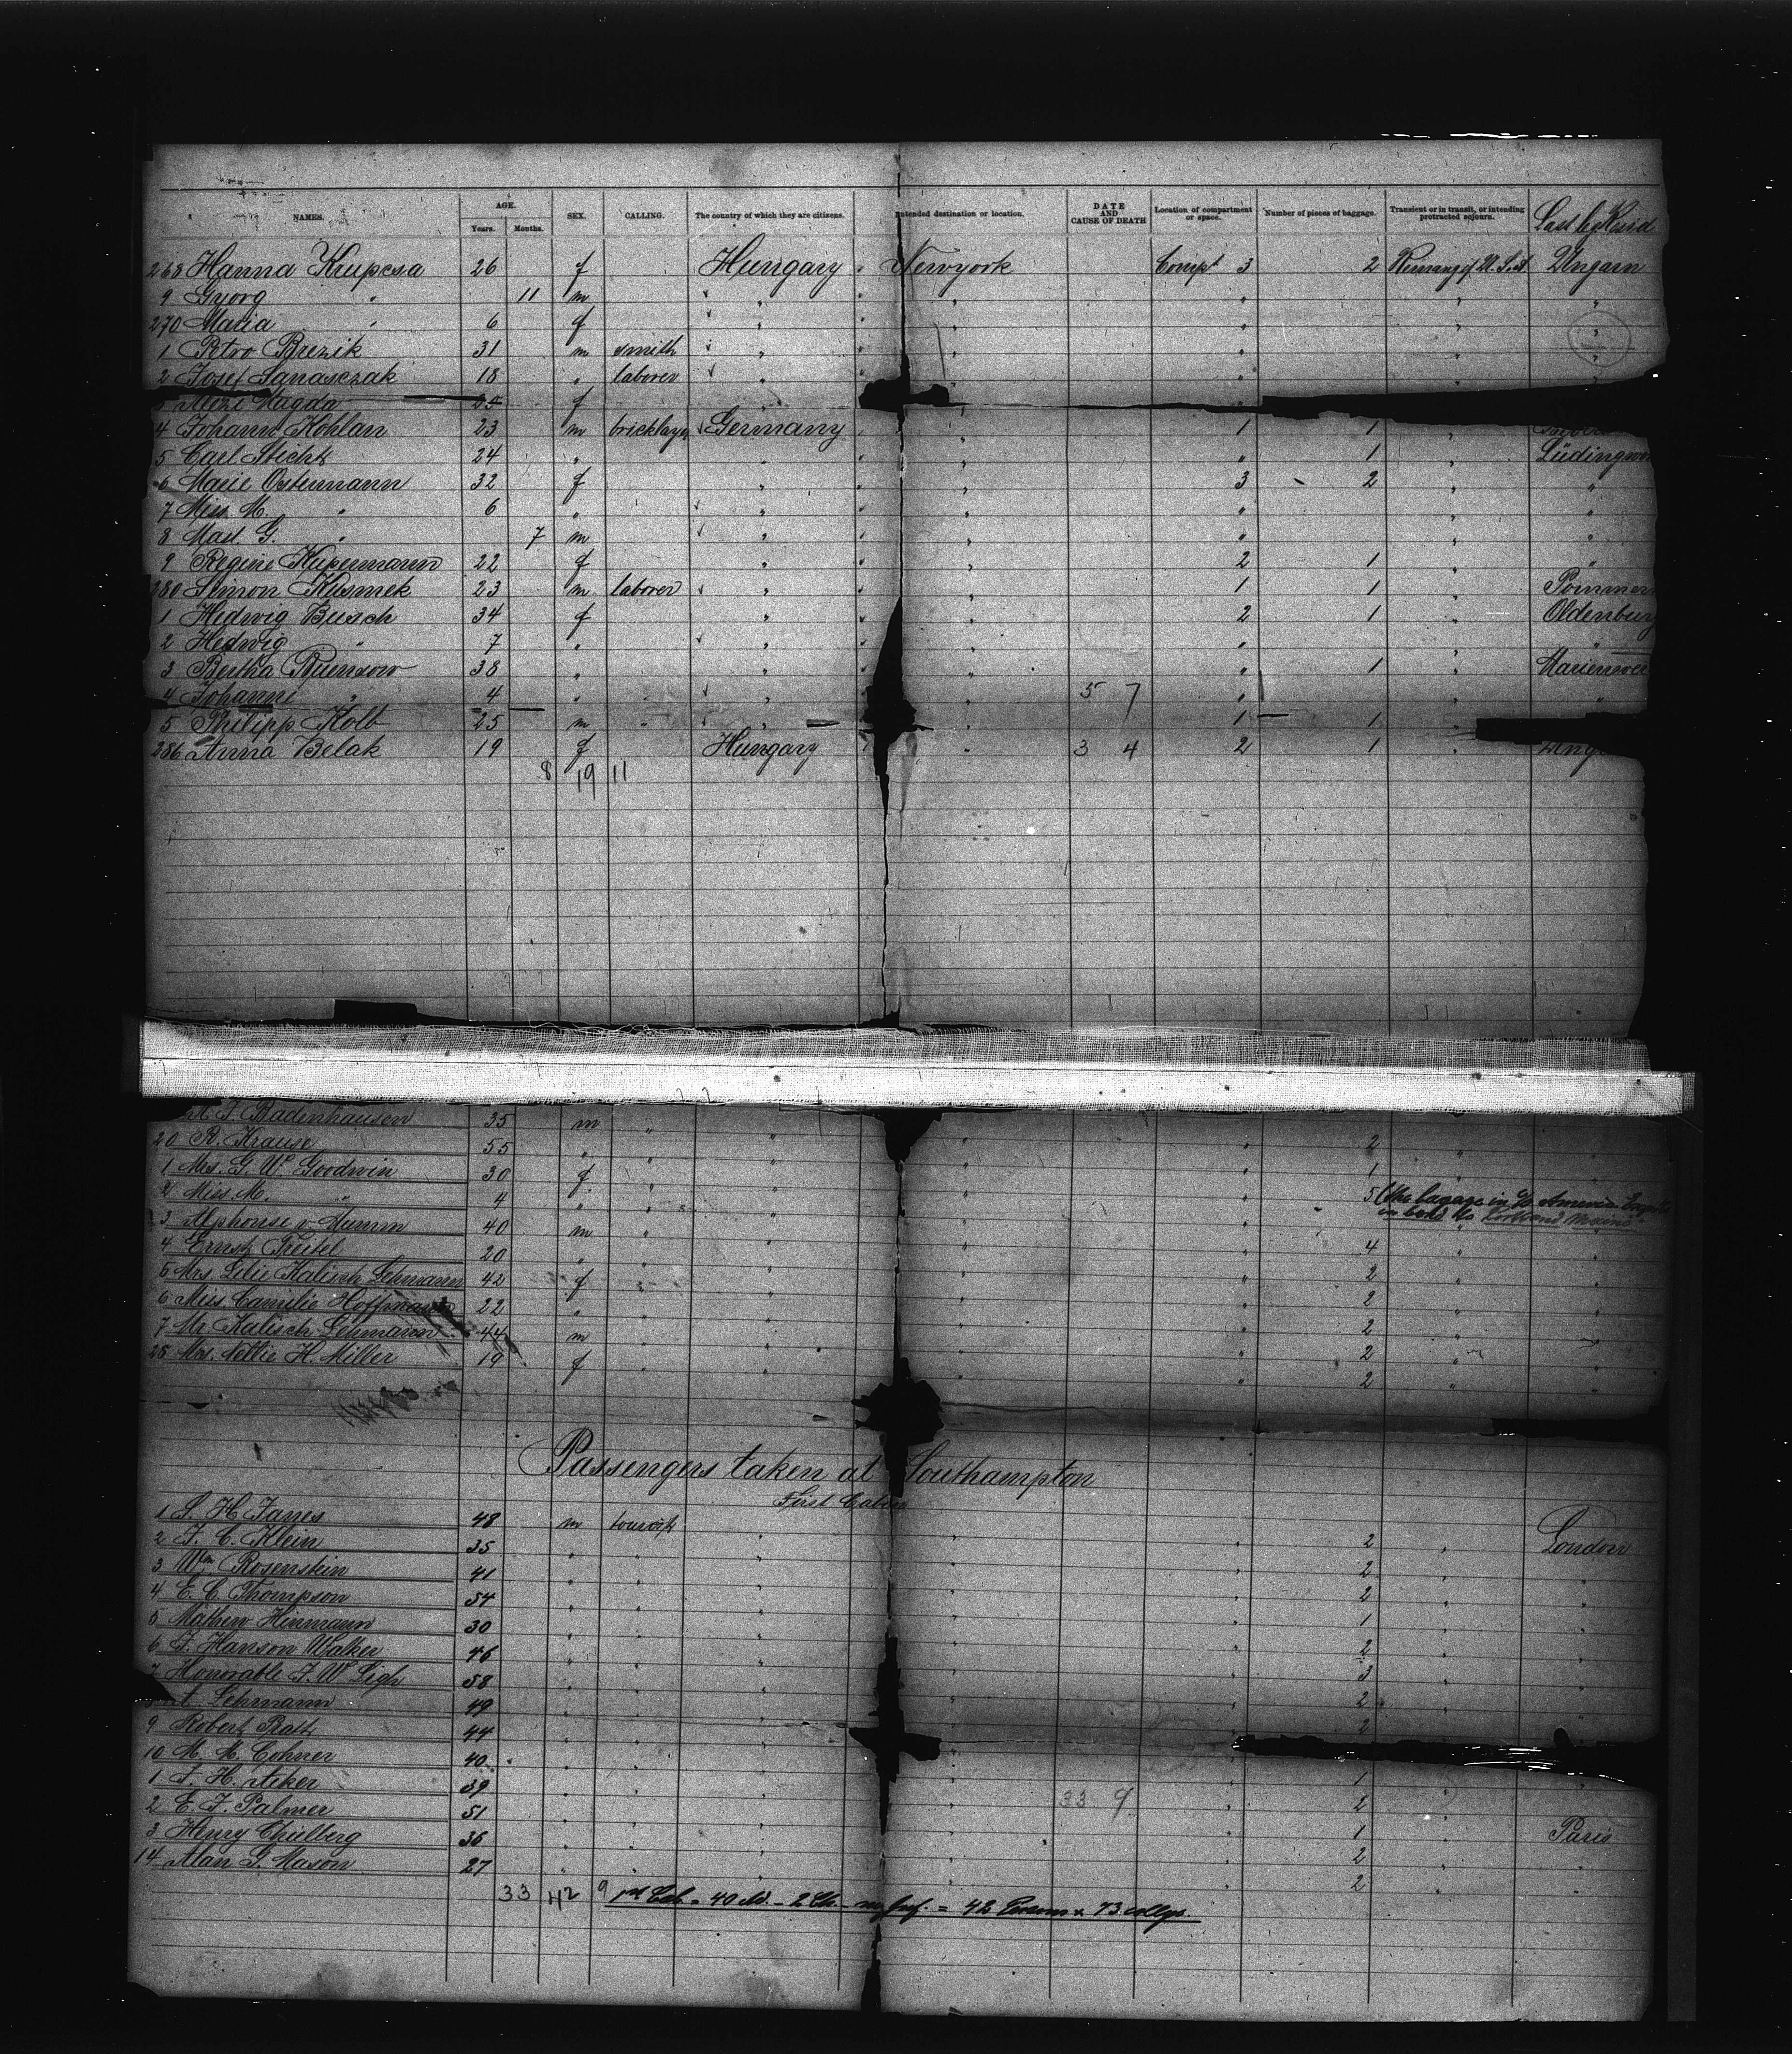 NAMES. AGE. Years. Months. SEX. CALLING. The country of which they are citizens. Intended destination or location. DATE AND CAUSE OF DEATH Location of compartment or space. Number of pieces of baggage. Transient or in transit, or intending protracted sojourn. Last leg Resid
268 Hanna Krupcsa 26 f Hungary Newyork Compt 3 2 Ungarn
9 Gyorg " 11 m " " " " "
270 Maria " 6 f " " " " "
1 Petro Brezik 31 m smith " " " " "
2 Josef 18 " laborer " " " "
3 Magda 25 f
4 Johann Kohlan 23 m bricklayer Germany " 1 1 "
5 Carl Sticht 24 " " " " 1 "
6 Marie Ostermann 32 f " " 3 2 " "
7 Miss M. " 6 " " " " " "
8 Mast G. " 7 m " " " " "
9 Regine Kupermann 22 f " " 2 1 " "
280 Simon Kusmek 23 m laborer " " 1 1 " Pommern
1 Hedwig Busch 34 f " " 2 1 " Oldenburg
2 Hedwig " 7 " " " " " "
3 Bertha Buensow 38 " " " " 1 "
4 Johanne " 4 " " " 5 7 " " "
5 Philipp Kolb 25 m " " " 1 1 "
286 Anna Belak 19 f Hungary " 3 4 2 1 "
8 19 11
Badenhausen 35 m " " " "
20 R. Krause 55 " " " " " 2 " "
1 Mrs. G. W. Goodwin 30 f " " " " 1
2 Miss M. " 4 " " " " " 5 (the bagage in
in bond to Portland Maine
3 Alphonse v. Mumm 40 m " " " " "
4 Ernst Treitel 20 " " " " " 4 " "
5 Mrs. Lilli Kalisch Lehmann 42 f " " " " 2 " "
6 Miss Camilie Hoffmann 22 " " " " " 2 " "
7 Mr Kalisch Lehmann 44 m " " " " 2 " "
28 Mrs. Nettie H. Miller 19 f " " " " 2 " "
2 " "
Passengers taken at Southampton
First Cabin
1 S. H. Janes 48 m tourist
2 J. C. Klein 35 " " " " " 2 " London
3 Wm Rosenstein 41 " " " " " 2 " "
4 E. C. Thompson 54 " " " " " 2 " "
5 Mathew Hinmann 30 " " " " " 1 " "
6 J. Hanson Walker 46 " " " " " 2 " "
7 Honorable J. W. Leigh 58 " " " " " 3 " "
Lehmann 49 " " " " " 2 " "
9 Robert Pratt 44 " " " " " 2 "
10 M. M. Cohner 40 " " " "
1 J. H. Aiker 39 " " " " " 1 " "
2 E. J. Palmer 51 " " " " 33 9 " 2 "
3 Henry Thulberg 36 " " " " " 1 " Paris
14 Alan G. Mason 27 " " " " " 2 " "
2 " "
33 42 9 1st Cab. = 40 Ad. - 2 Ch. - no Inf. = 42 Persons x 73 collys.